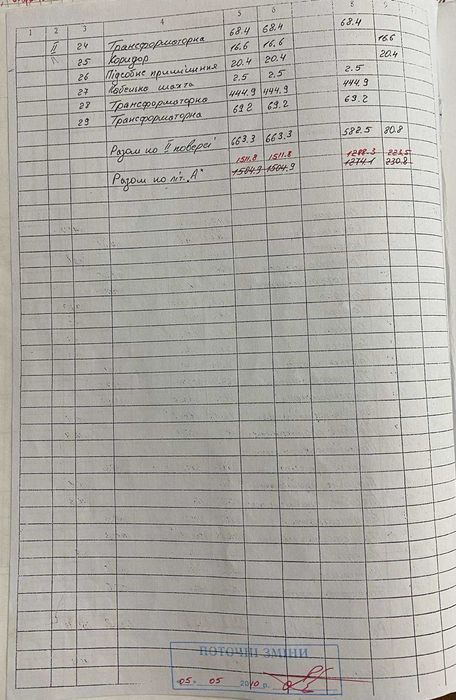 1 2 3 4 5 6 8
II 24 Трансформаторна 68.4 68.4 68.4
25 Коридор 16.6 16.6 16.6
26 Підсобне приміщення 20.4 20.4 20.4
27 Кабельна шахта 2.5 2.5 2.5
28 Трансформаторна 444.9 444.9 444.9
29 Трансформаторна 69.2 69.2 69.2
Разом по II поверсі 663.3 663.3 588.5 80.8
1511.8 1511.8 1288.3 223.5
Разом по літ. „А" 1504.9 1504.9 1274.1 230.8
ПОТОЧНІ ЗМІНИ
05. 05 2010 р.